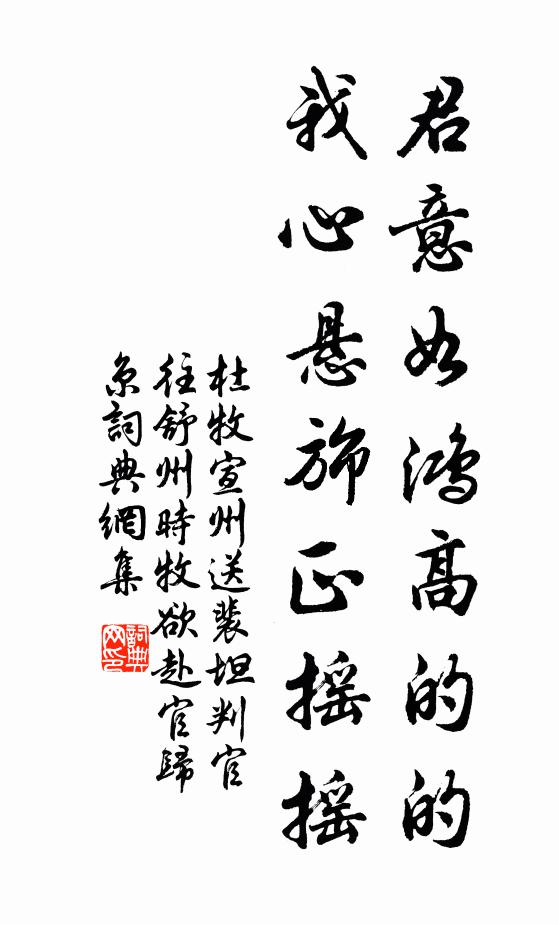 君意如鸿高的的
我心悬旆正摇摇
杜牧宣州送裴坦判官
往舒州時牧欲赴官歸
京詞典網集
詞典
网印